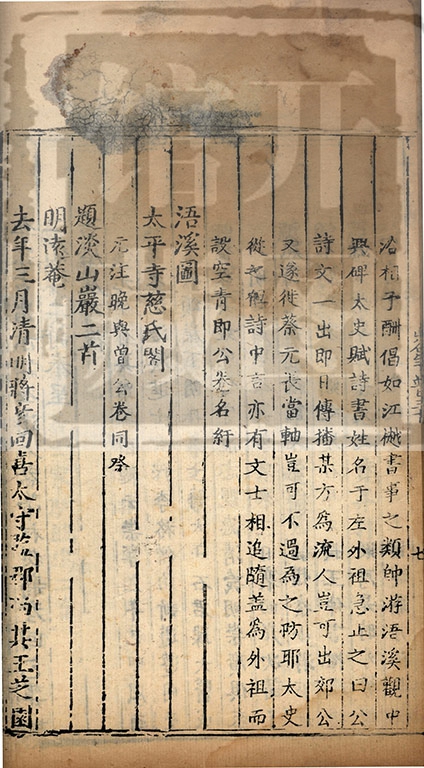 洽相予酬倡如江樾書事之類帥游浯溪觀中
興碑太史賦詩書姓名于左外祖急止之曰公
詩文一出即日傳播某方為流人豈可出郊公
又遂徙蔡元長當軸豈可不過為之防耶太史
從之但詩中言亦有文士相追隨蓋為外祖而
設空青即公卷名紆
浯溪圖
太平寺慈氏閣
元注晚與曾公卷同登
題淡山巖二首
明遠菴
去年三月清明蔣彥回喜太守監郡過其玉芝園
七